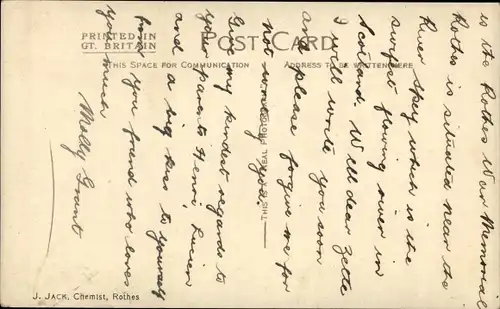 PRINTED IN
GT. BRITAIN
POST CARD
THIS SPACE FOR COMMUNICATION
ADDRESS TO BE WRITTEN HERE
THIS IS A REAL PHOTOGRAPH
is the Rothes War Memorial
Rothes is situated near the
River Spey which is the
swiftest flowing river in
Scotland. Well dear Zette
I will write you soon
and please forgive me for
not writing you.
Give my kindest regards to
your parents Henri, Lucien
and a big kiss to yourself
from your friend who loves
you much
Molly Grant
J. JACK, Chemist, Rothes